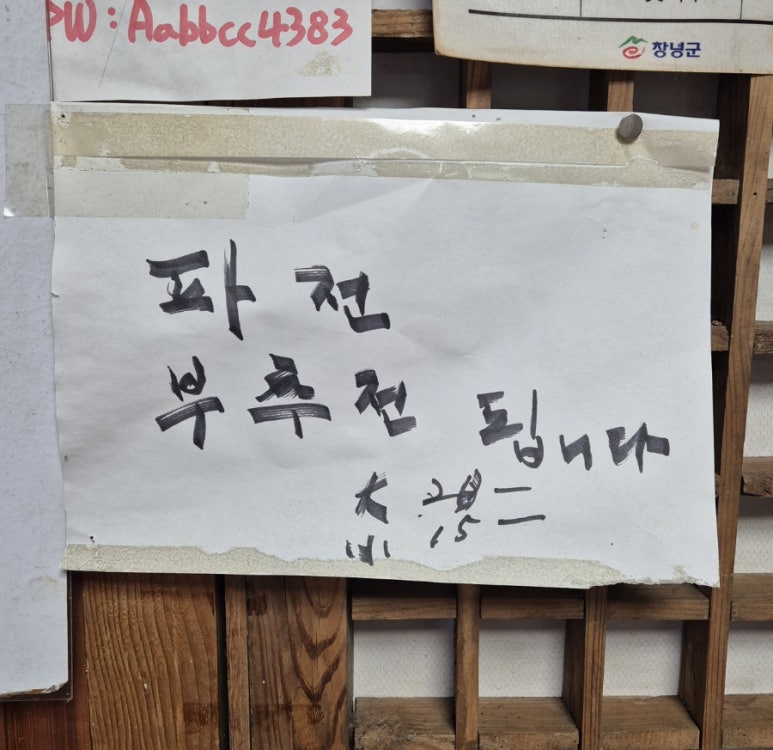 PW: Aabbcc4383
창녕군
파전
부추전 됩니다
大
小
15